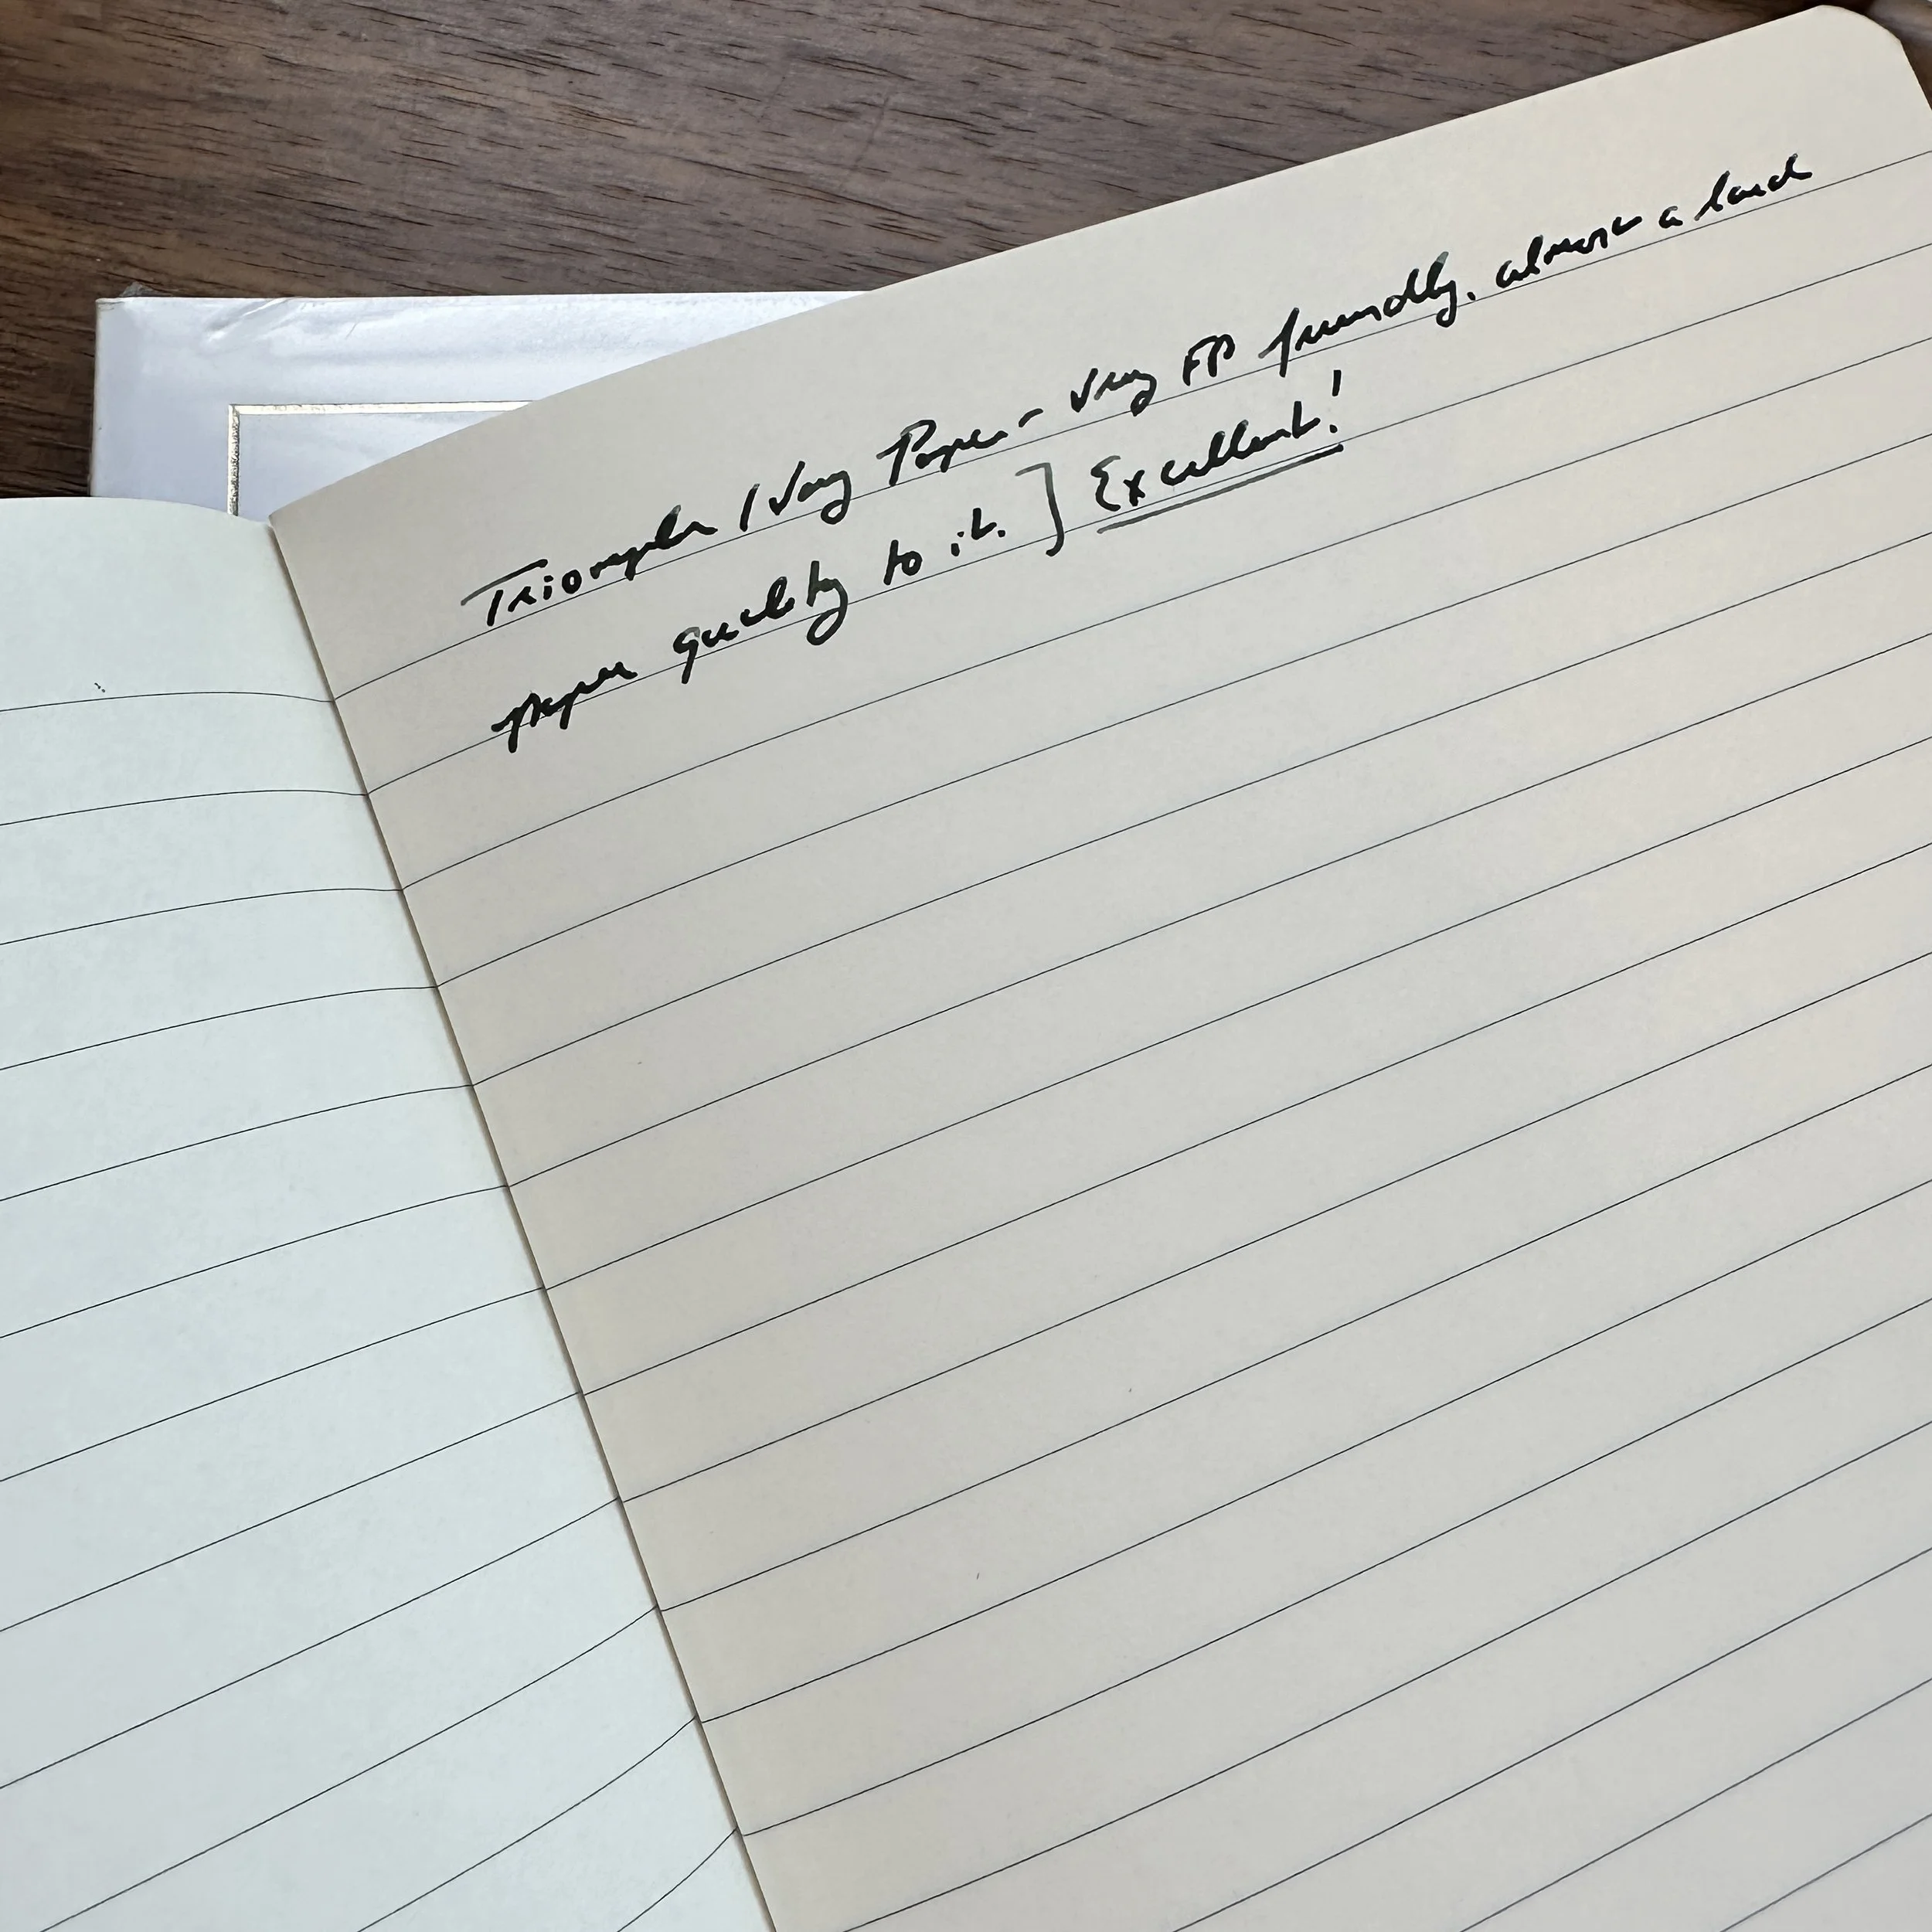 Triomphe / Ivory Paper - very FP friendly, almost a laid
paper quality to it. ] Excellent!